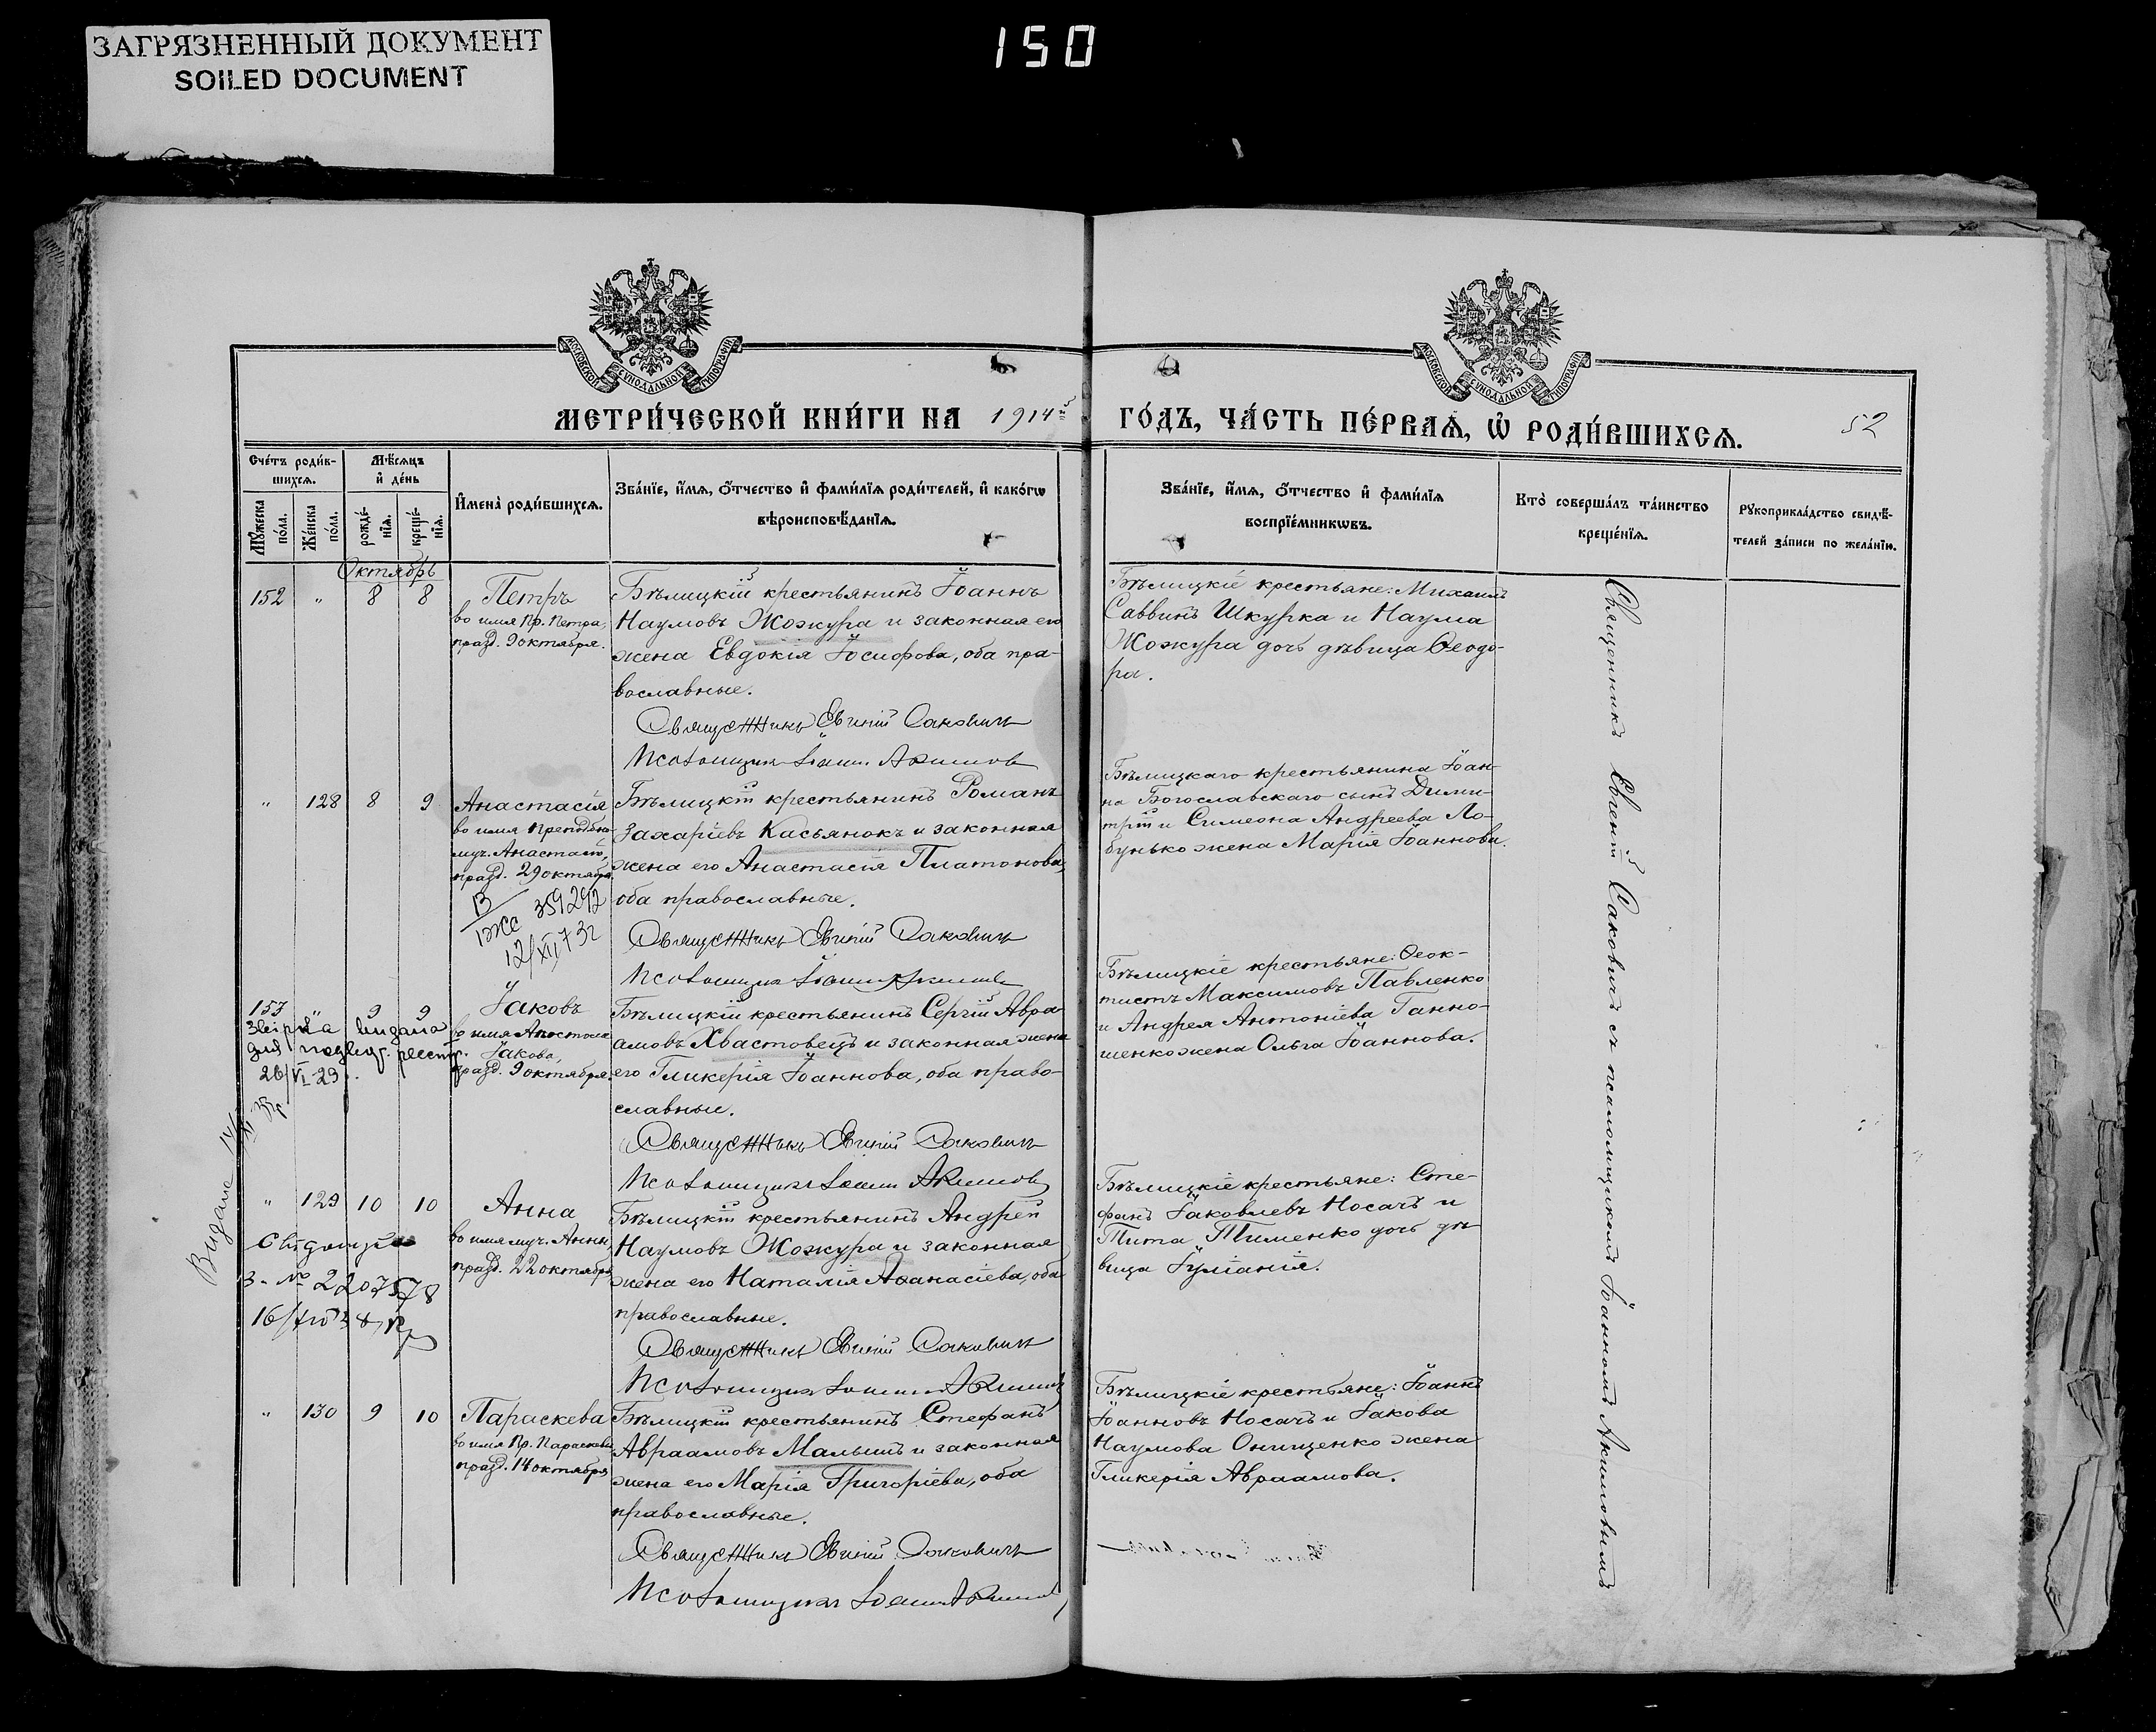 ЗАГРЯЗНЕННЫЙ ДОКУМЕНТ
SOILED DOCUMENT
150
МОСКОВСКОЙ СУНОДАЛЬНОЙ ТИПОГРАФІИ
МОСКОВСКОЙ СУНОДАЛЬНОЙ ТИПОГРАФІИ
МЕТРИ́ЧЕСКОЙ КНИ́ГИ НА 1914й ГО́ДЪ, ЧА́СТЬ ПЕ́РВАѦ, Ѡ҆ РОДИ́ВШИХСѦ.
52
Сче́тъ роди́в-
шихсѧ.
Мѣ́сѧцъ
и҆ де́нь
Мꙋ́жеска по́ла.
Же́нска по́ла.
рожде́-
нїѧ.
креще́-
нїѧ.
И҆мена̀ роди́вшихсѧ.
Зва́нїе, и҆́мѧ, ѻ҆́тчество и҆ фами́лїѧ роди́телей, и҆ како́гѡ
вѣроисповѣ́данїѧ.
Зва́нїе, и҆́мѧ, ѻ҆́тчество и҆ фами́лїѧ
воспрїе́мникѡвъ.
Кто̀ соверша́лъ та́инство
креще́нїѧ.
Рꙋкоприкла́дство свидѣ́-
телей за́писи по жела́нїю.
Октябрь
152 " 8 8
Петръ
во имя Пр. Петра,
празд. 9 октября.
Бѣлицкій крестьянинъ Іоаннъ
Наумовъ Жожура и законная его
жена Евдокія Іосифова, оба пра-
вославные.
Священникъ Евгеній Саковичъ
Псаломщикъ Іоаннъ Акимовъ
Бѣлицкіе крестьяне: Михаилъ
Саввинъ Шкурка и Наума
Жожура дочь дѣвица Ѳеодо-
ра.
" 128 8 9
Анастасія
во имя Преподобно-
муч. Анастасіи,
празд. 29 октября.
359292
12/XII 73г
Бѣлицкій крестьянинъ Романъ
Захаріевъ Касьянокъ и законная
жена его Анастасія Платонова,
оба православные.
Священникъ Евгеній Саковичъ
Псаломщикъ Іоаннъ Акимовъ
Бѣлицкаго крестьянина Іоан-
на Богославскаго сынъ Дими-
трій и Симеона Андреева Ло-
бунько жена Марія Іоаннова.
153 " 9 9
Іаковъ
во имя Апостола
Іакова,
празд. 9 октября.
видана
26/VI-29.
Бѣлицкій крестьянинъ Сергій Авра-
амовъ Хвастовецъ и законная жена
его Гликерія Іоаннова, оба право-
славные.
Священникъ Евгеній Саковичъ
Псаломщикъ Іоаннъ Акимовъ
Бѣлицкіе крестьяне: Ѳеок-
тистъ Максимовъ Павленко
и Андрея Антоніева Ганно-
шенко жена Ольга Іоаннова.
" 129 10 10
Анна
во имя муч. Анны,
празд. 22 октября
Видане
Бѣлицкій крестьянинъ Андрей
Наумовъ Жожура и законная
жена его Наталія Аѳанасіева, оба
православные.
Священникъ Евгеній Саковичъ
Псаломщикъ Іоаннъ Акимовъ
Бѣлицкіе крестьяне: Сте-
фанъ Іаковлевъ Носачъ и
Тита Тименко дочь дѣ-
вица Іуліанія.
" 130 9 10
Параскева
во имя Пр. Параскевы
празд. 14 октября
Бѣлицкій крестьянинъ Стефанъ
Авраамовъ Малышъ и законная
жена его Марія Григоріева, оба
православные.
Священникъ Евгеній Саковичъ
Псаломщикъ Іоаннъ Акимовъ
Бѣлицкіе крестьяне: Іоаннъ
Іоанновъ Носачъ и Іакова
Наумова Онищенко жена
Гликерія Авраамова.
Священникъ Евгеній Саковичъ съ псаломщикомъ Іоанномъ Акимовымъ